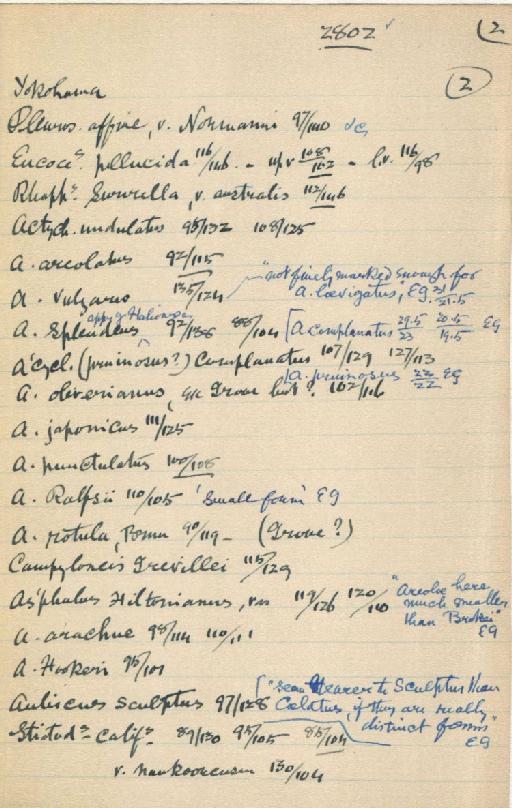 2802
(2
(2)
Yokohama
Pleuros. affine, v. Normanii 97/110
Eucocs. pellucida 116/146 - up v 108/162 - l.v. 116/98
Rhaphs. Surirella, v. australis 112/146
Actych. undulatus 95/132 108/125
A. areolatus 92/115
A. vulgaris 135/124 "not finely marked enough for
A. laevigatus", EG. 21/21.5
A. splendens 92/186 88/104 [A complanatus 29.5/23 20.5/19.5 EG
Acycl. (pruinosus?) Complanatus 107/129 127/113
[A. pruinosus 22/22 EG
A. oliverianus, Grove lit? 102/116
A. japonicus 111/125
A. punctulatus 100/108
A. Ralfsii 110/105 'small form' EG
A. rotula, Temp 90/119 - (Grove?)
Campyloneis Grevillei 115/129
Asphalus Hiltonianus, var 119/126 120/110 "Areolae here
much smaller
than Brokei"
EG
A. arachne 98/114 110/111
A. Hookeri 95/101
Auliscus sculptus 97/128 ["seem nearer to Sculptus than
Caelatus, if they are really
distinct forms"
EG
Stictods - califs - 89/130 95/105 85/104
v. nankoorensis 130/104